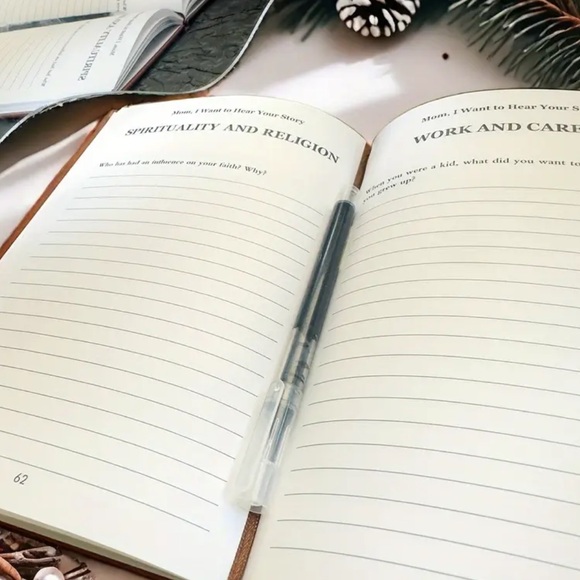 Mom, I Want to Hear Your Story
SPIRITUALITY AND RELIGION
Who has had an influence on your faith? Why?
62
Mom, I Want to Hear Your S
WORK AND CARE
When you were a kid, what did you want to
you grew up?